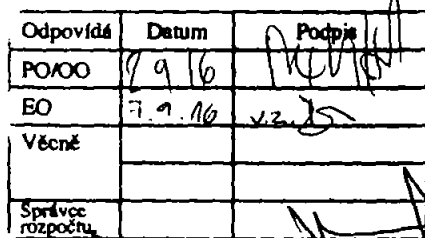 Odpovídá Datum Podpis
PO/OO 7 9 16
EO 7.9.16 v.z.
Věcně
Správce
rozpočtu